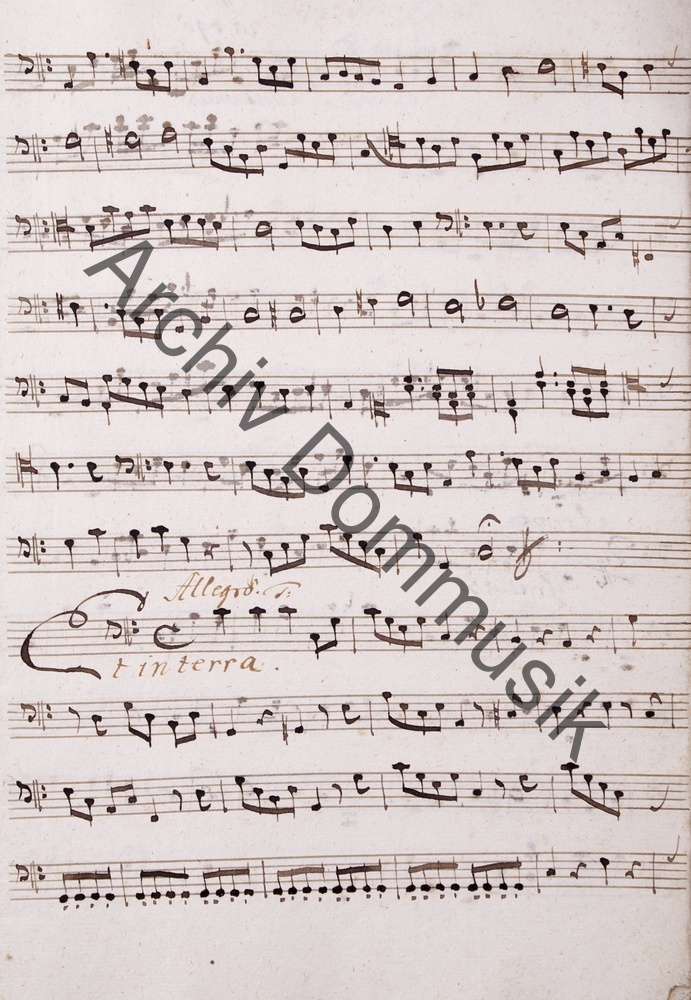 Allegro. T:
Et in terra.
Archiv Dommusik